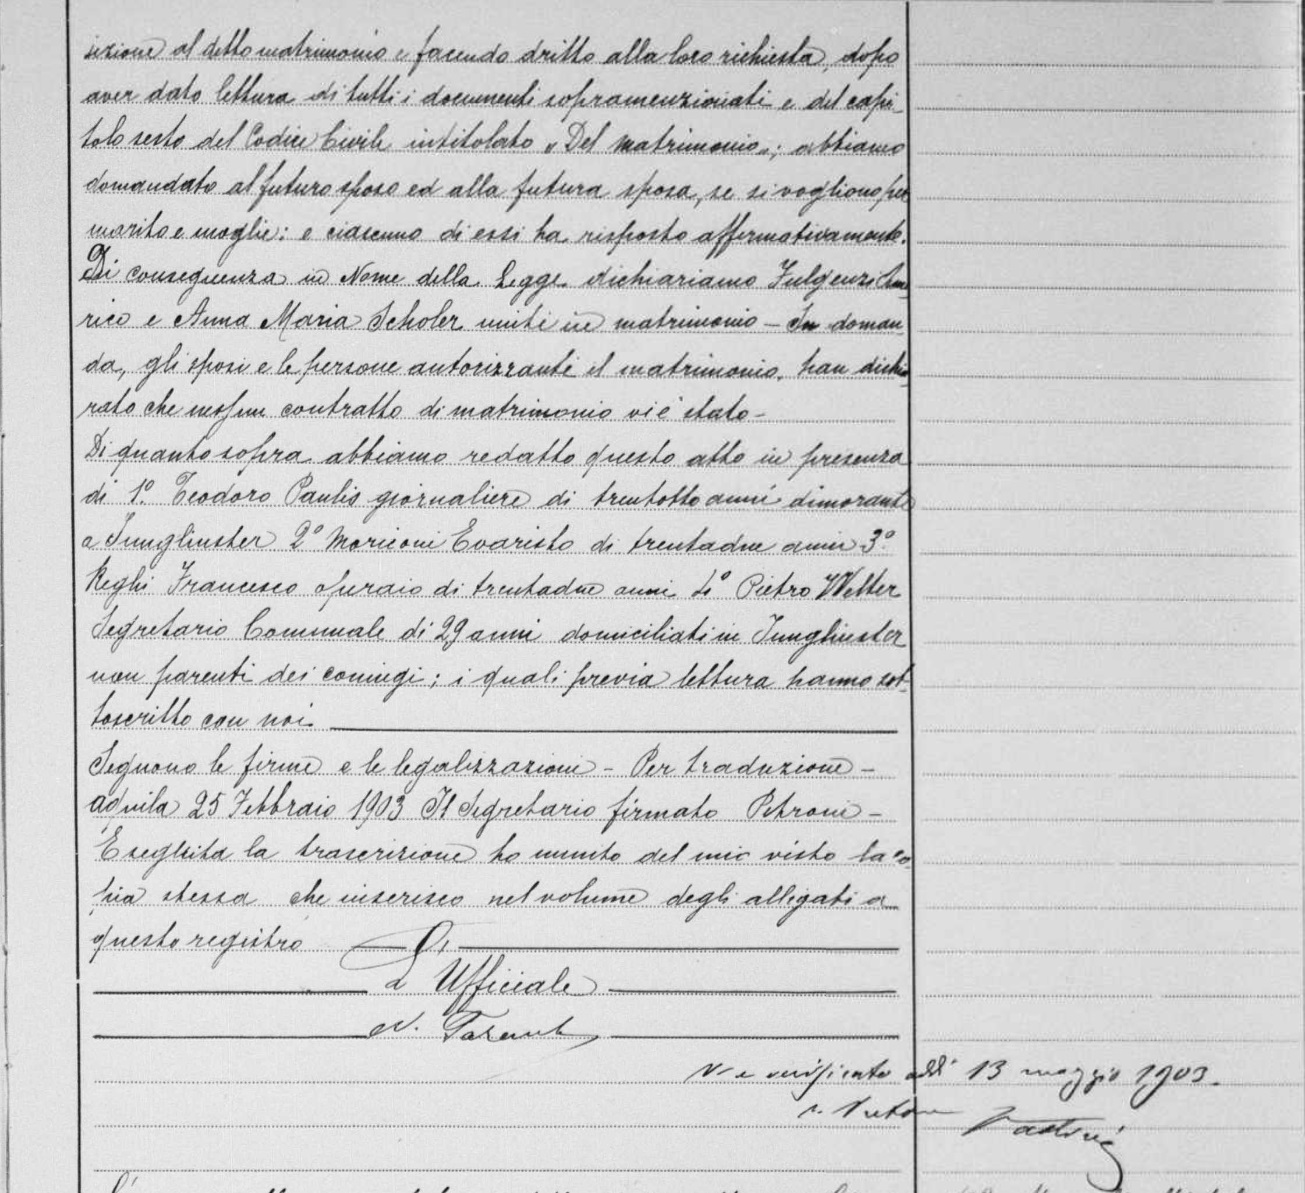 sizione al detto matrimonio e facendo dritto alla loro richiesta, dopo
aver dato lettura di tutti i documenti sopramenzionati e del capi-
tolo sesto del Codice Civile intitolato „Del Matrimonio„; abbiamo
domandato al futuro sposo ed alla futura sposa, se si vogliono per
marito e moglie: e ciascuno di essi ha risposto affermativamente.
Di conseguenza in Nome della Legge dichiariamo Fulgenzi Ame
rico e Anna Maria Scholer uniti in matrimonio – In doman-
da, gli sposi e le persone autorizzanti il matrimonio, han dichia
rato che nessun contratto di matrimonio vi è stato –
Di quanto sopra abbiamo redatto questo atto in presenza
di 1º. Teodoro Paulis giornaliere di trentotto anni dimorante
a Junglinster 2º Moriconi Evaristo di trentadue anni 3.º
Reghi Francesco operaio di trentadue anni 4º Pietro Welter
Segretario Comunale di 29 anni domiciliati in Junglinster
non parenti dei coniugi; i quali previa lettura hanno sot-
toscritto con noi.
Seguono le firme e le legalizzazioni – Per traduzione –
Aquila 25 Febbraio 1903 Il Segretario firmato Petroni –
Eseguita la trascrizione ho munito del mio visto la co
pia stessa che inserisco nel volume degli allegati a
questo registro
L'Ufficiale
N.
V e verificato addì 13 maggio 1903.